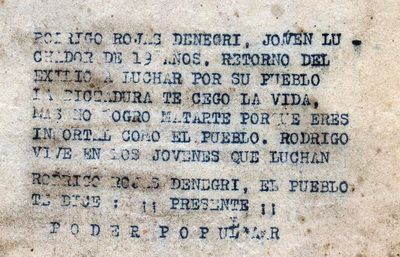 RODRIGO ROJAS DENEGRI, JOVEN LU
CHADOR DE 19 AÑOS. RETORNO DEL
EXILIO A LUCHAR POR SU PUEBLO
LA DICTADURA TE CEGO LA VIDA,
MAS NO LOGRO MATARTE PORQUE ERES
INMORTAL COMO EL PUEBLO. RODRIGO
VIVE EN LOS JOVENES QUE LUCHAN
RODRIGO ROJAS DENEGRI, EL PUEBLO
TE DICE : ¡¡ PRESENTE ¡¡
PODER POPULAR